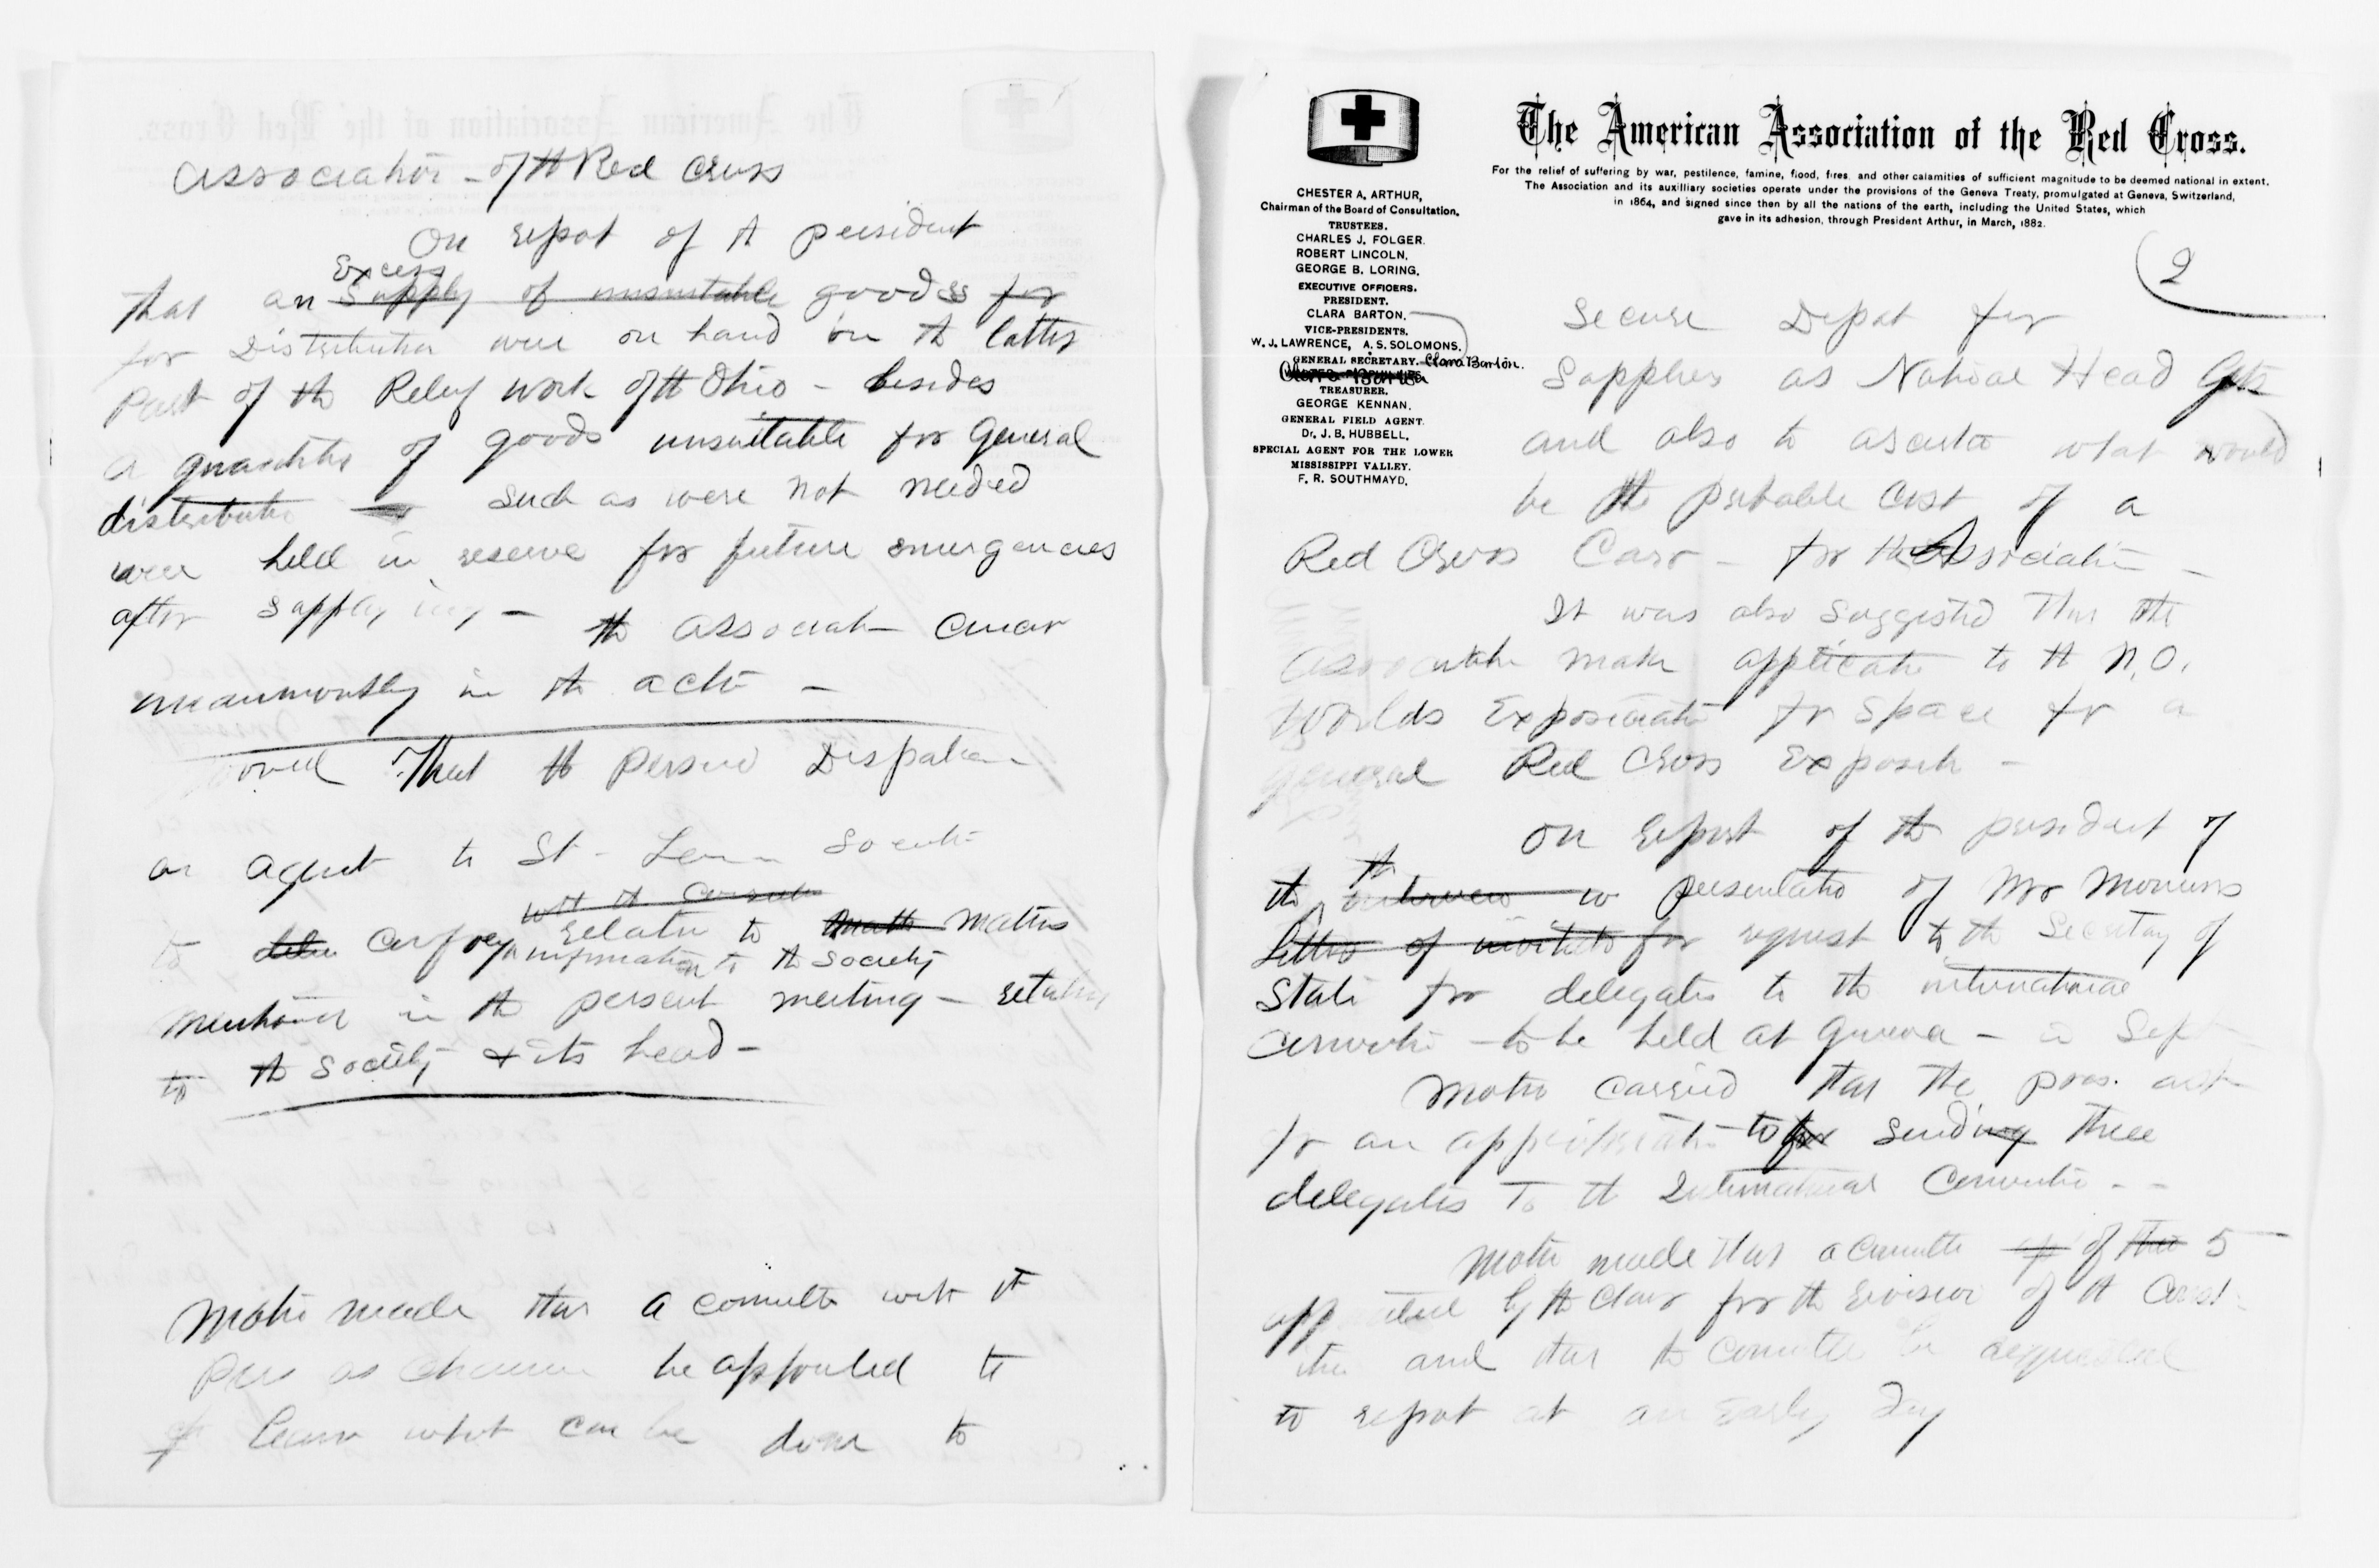 Association - of th Red Cross
On repot of th president
Excess
that an Supply of unsuitable goods for
for Distribution were on hand in th latter
Part of th Relief work of th Ohio - besides
a quantity of goods unsuitable for General
distributio such as were not needed
were held in reserve for future emergencies
after supplying - th Associat concur
unanimously in th acti -
That th
an agent to St - Society
with th
to relative to matters
information to th society
in th present meeting - relating
to th Society & its head -
Motio made that a committe with th
Pres as Chairman be appointed to
learn what can be done to
The American Association of the Red Cross.
For the relief of suffering by war, pestilence, famine, flood, fires, and other calamities of sufficient magnitude to be deemed national in extent.
The Association and its auxilliary societies operate under the provisions of the Geneva Treaty, promulgated at Geneva, Switzerland,
in 1864, and signed since then by all the nations of the earth, including the United States, which
gave in its adhesion, through President Arthur, in March, 1882.
CHESTER A. ARTHUR,
Chairman of the Board of Consultation.
TRUSTEES.
CHARLES J. FOLGER.
ROBERT LINCOLN.
GEORGE B. LORING.
EXECUTIVE OFFICERS.
PRESIDENT.
CLARA BARTON.
VICE-PRESIDENTS.
W. J. LAWRENCE, A. S. SOLOMONS.
GENERAL SECRETARY. Clara Barton.
Clara Barton
TREASURER.
GEORGE KENNAN.
GENERAL FIELD AGENT
Dr. J. B. HUBBELL.
SPECIAL AGENT FOR THE LOWER
MISSISSIPPI VALLEY.
F. R. SOUTHMAYD.
2
Secure Depot for
Supplies as National Head Qts
and also to what would
be th probable cost of a
Red Cross Car - for th Association -
It was also suggested that the
Association make applicatio to th N.O.
Worlds for space for a
general Red Cross
On report of th president of
th
th interview presentatio of Mr
letter of for request to th Secretary of
State for delegates to th international
- to be held at Geneva - in Sep
Motio carried that the pres. ask
for an appropriatio to for sending three
delegates To th International -
Motio made that a committe of three 5
by th Chair for th revision of th Const
and that th committe be requested
to repot at an Early Day